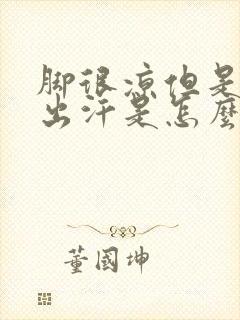 脚很凉但是
出汗是怎麼
董國坤